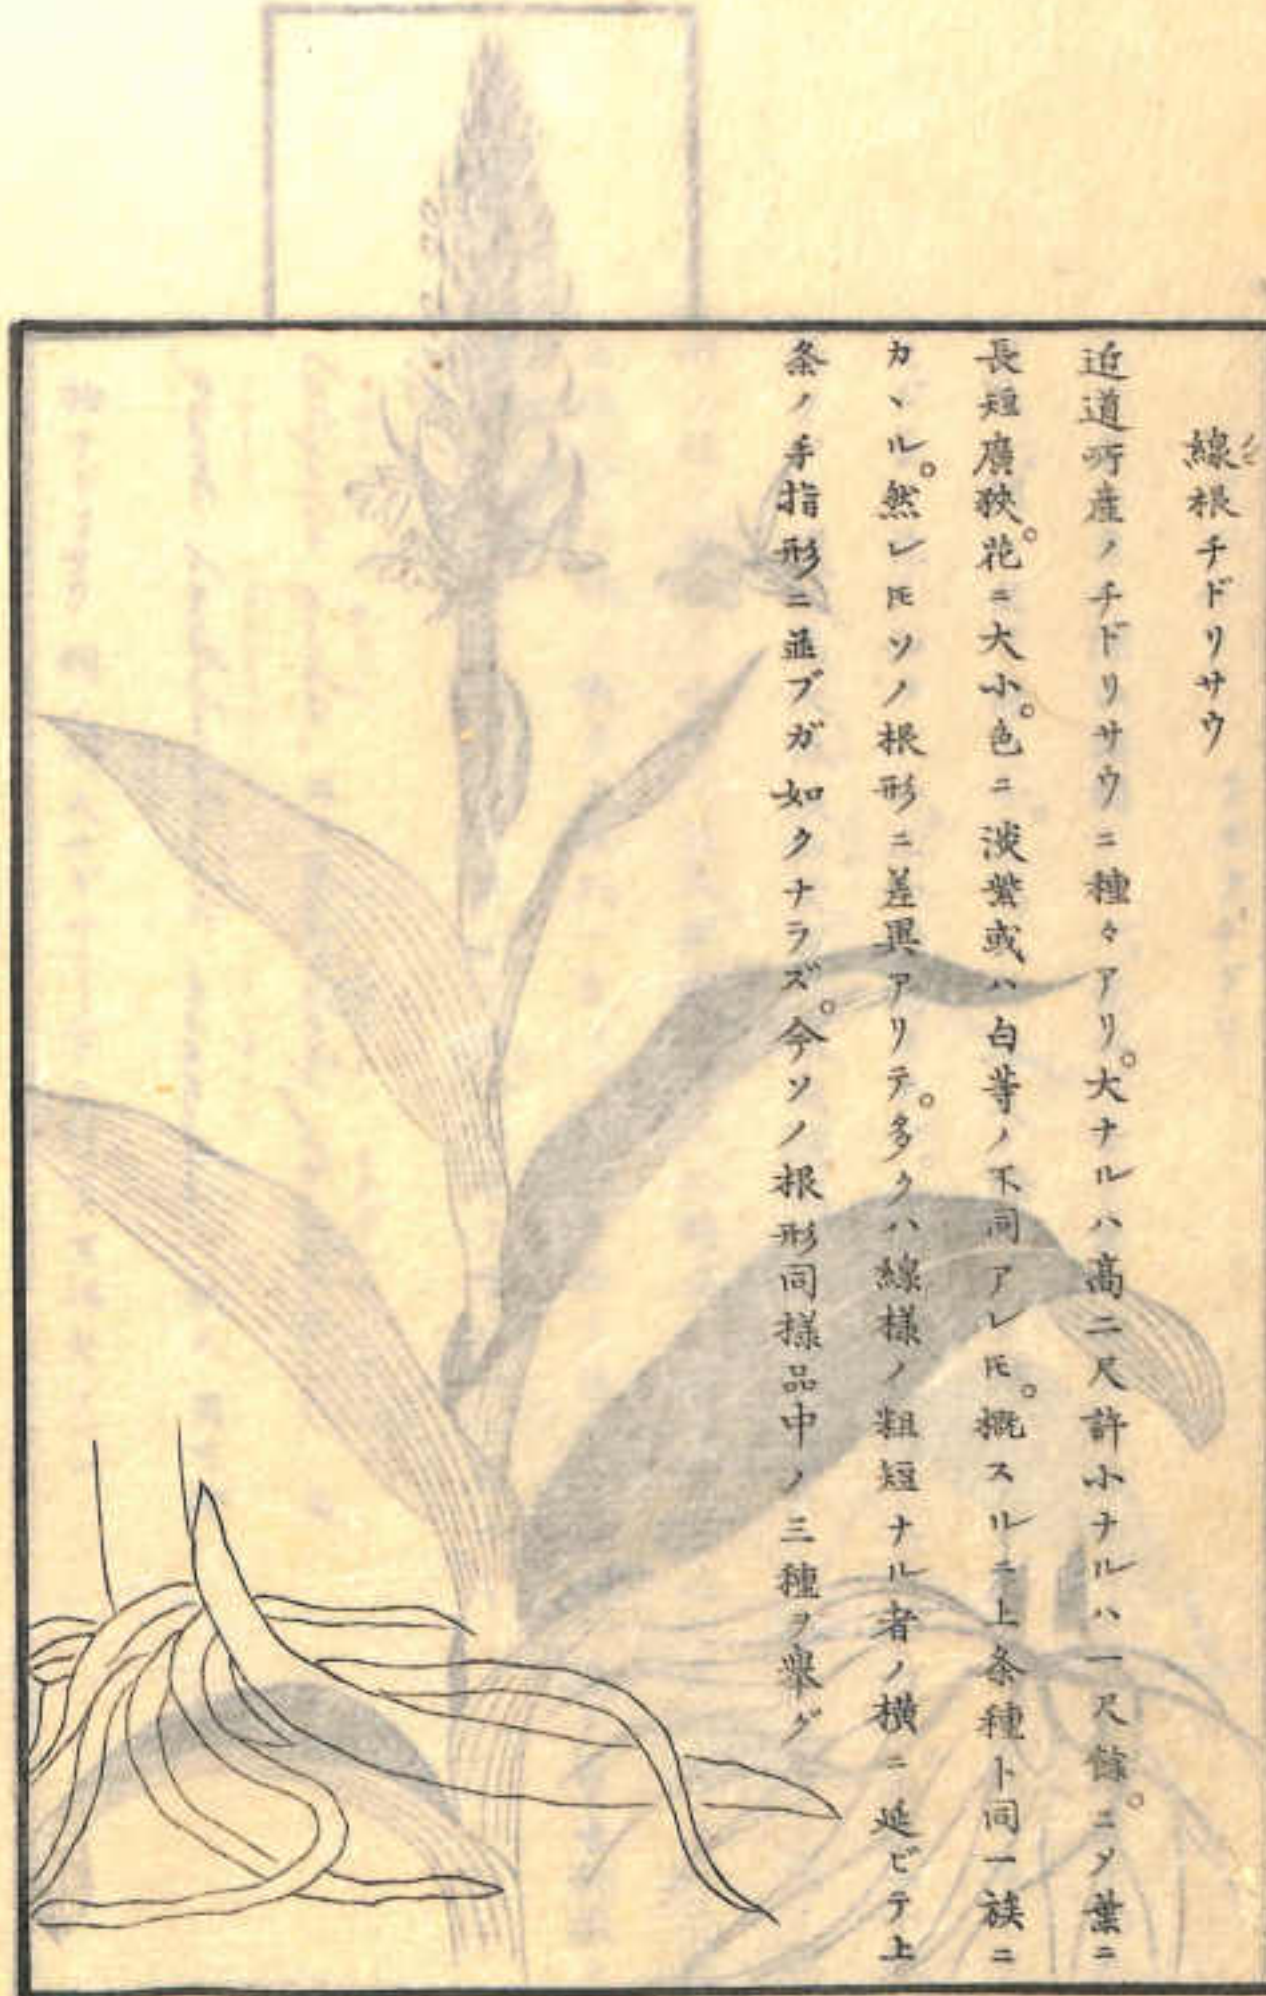 線根チドリサウ
近道所産ノチドリサウニ種々アリ。大ナルハ高二尺許小ナルハ一尺餘。ニ〆葉ニ
長短廣狹。花ニ大小。色ニ淡紫或ハ白等ノ不同アレ𪜈。概スルニ上条種ト同一族ニ
カヽル。然レ𪜈ソノ根形ニ差異アリテ。多クハ線様ノ粗短ナル者ノ横ニ延ビテ上
条ノ手指形ニ並ブガ如クナラズ。今ソノ根形同様品中ノ三種ヲ舉グ